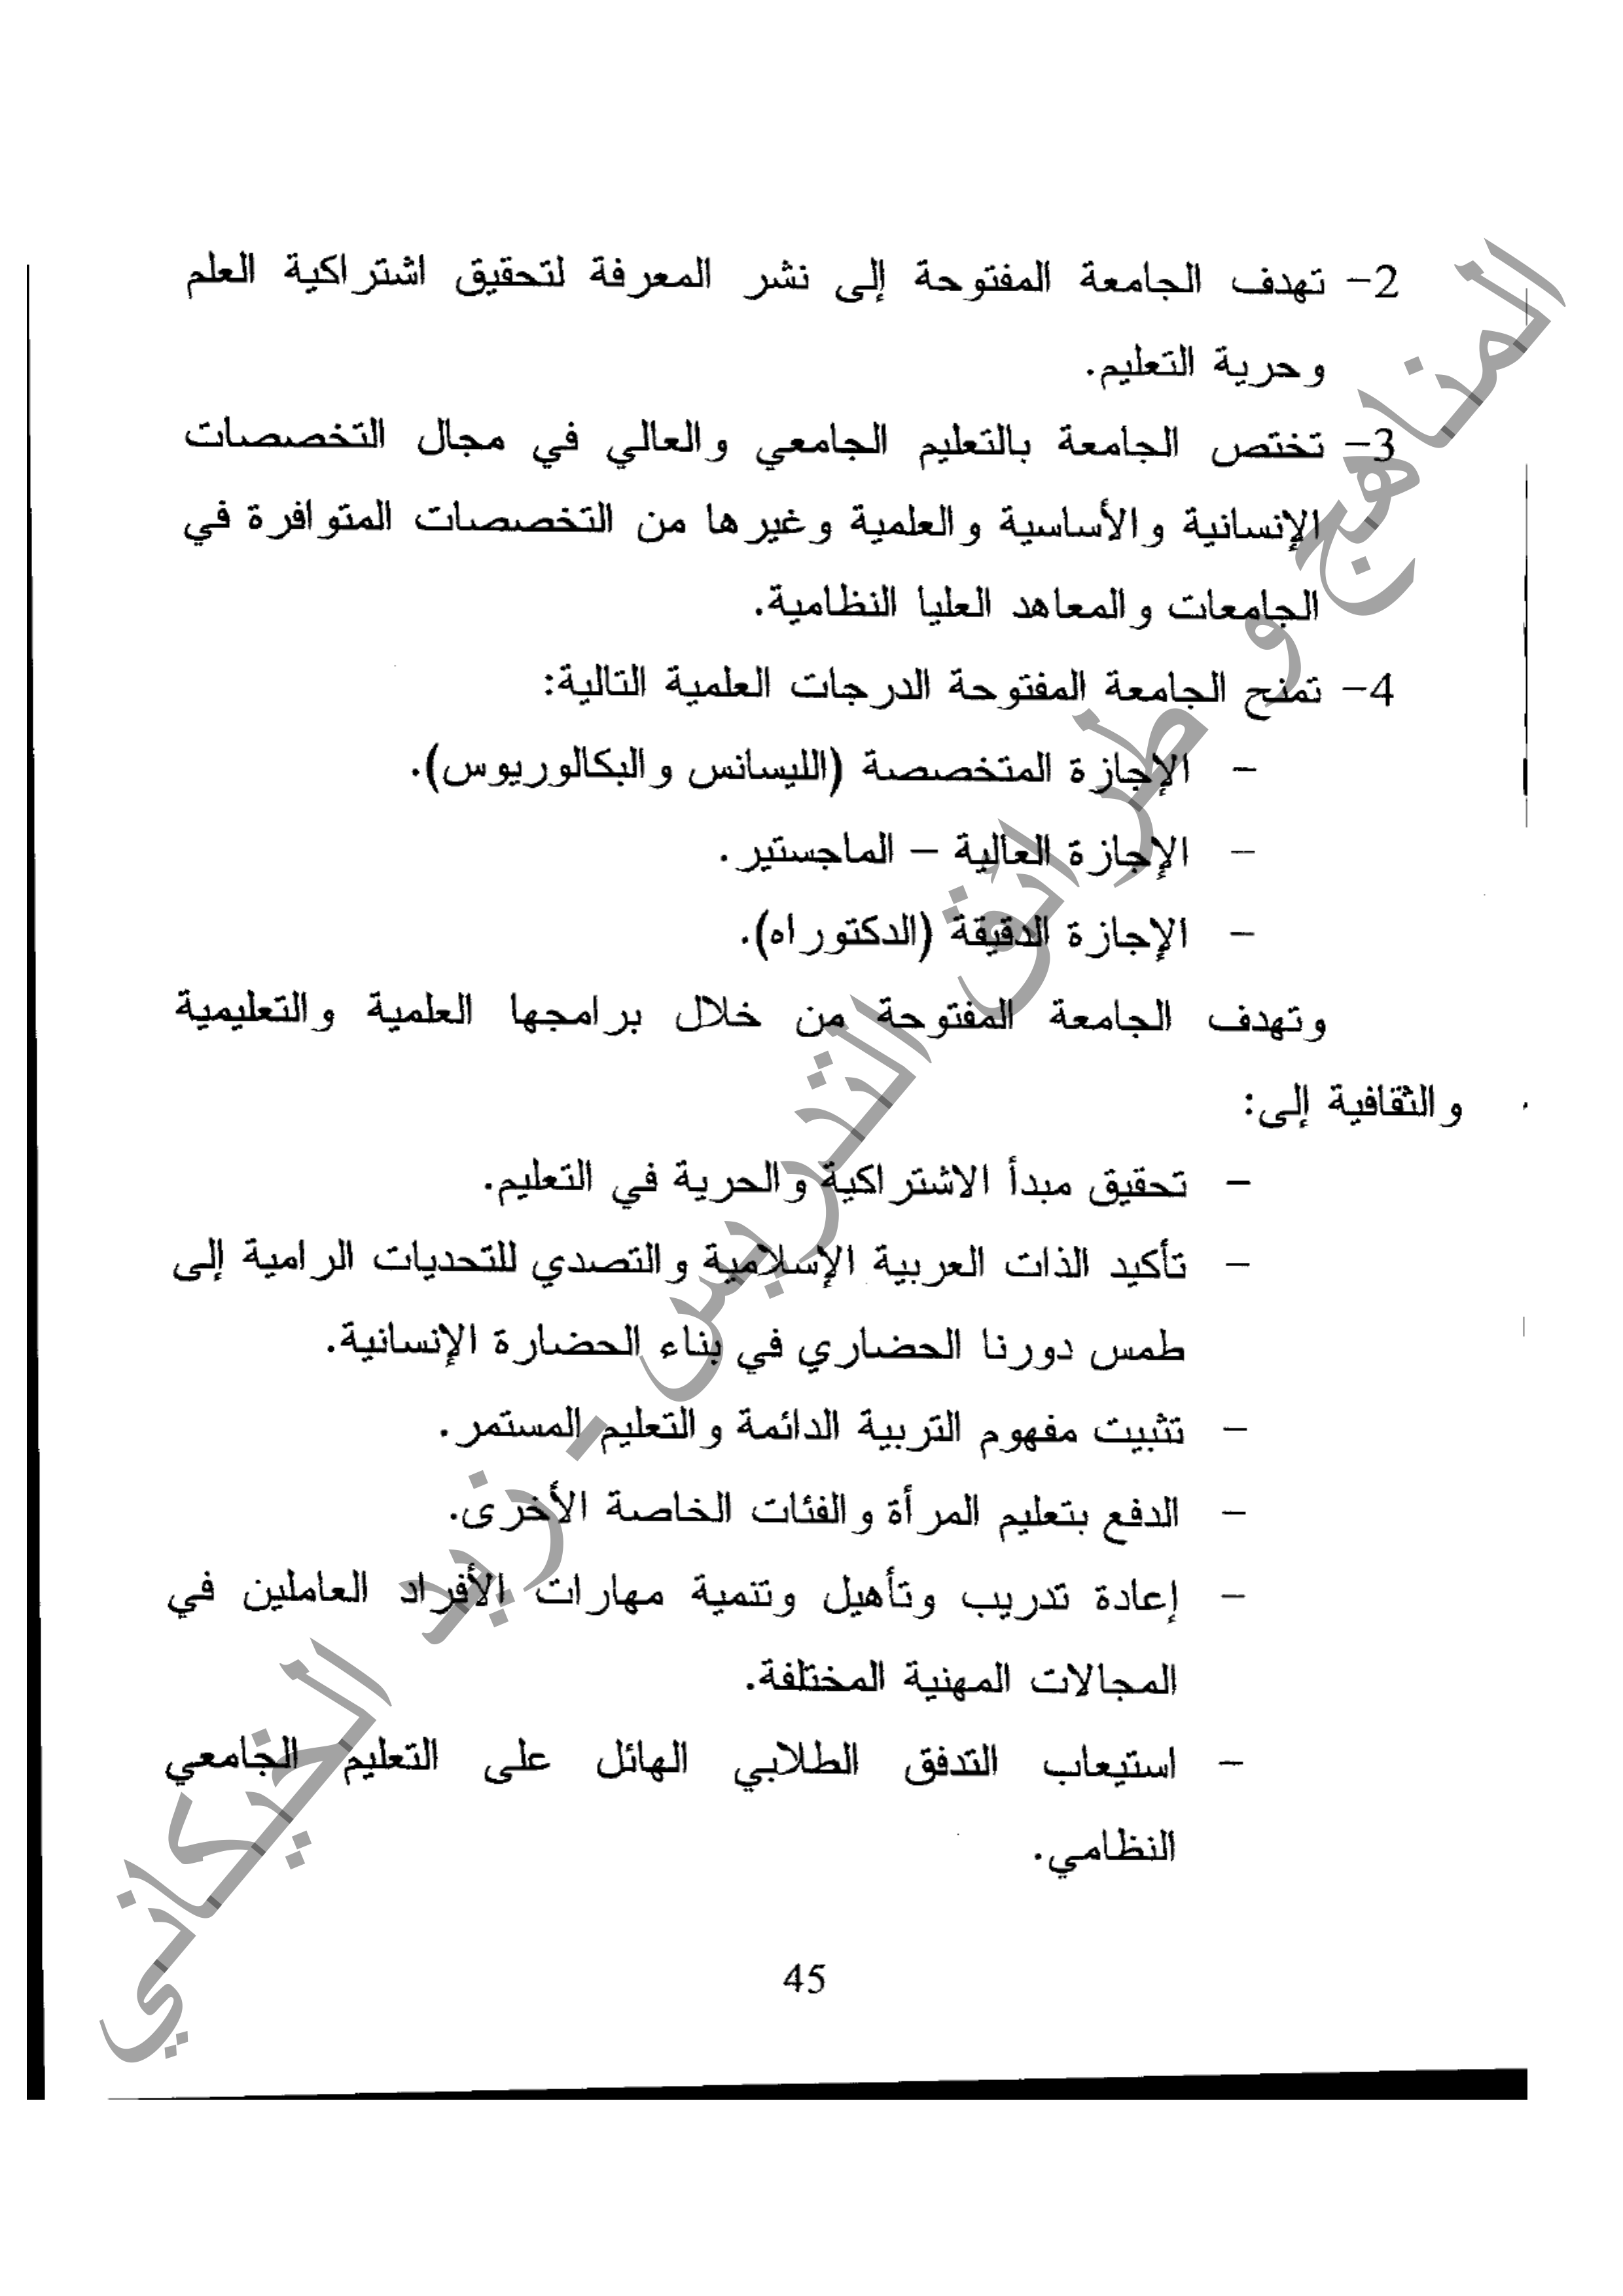 2- تهدف الجامعة المفتوحة إلى نشر المعرفة لتحقيق اشتراكية العلم
وحرية التعليم.
3- تختص الجامعة بالتعليم الجامعي والعالي في مجال التخصصات
الإنسانية والأساسية والعلمية وغيرها من التخصصات المتوافرة في
الجامعات والمعاهد العليا النظامية.
4- تمنح الجامعة المفتوحة الدرجات العلمية التالية:
- الإجازة المتخصصة (الليسانس والبكالوريوس).
- الإجازة العالية – الماجستير.
- الإجازة الدقيقة (الدكتوراه).
وتهدف الجامعة المفتوحة من خلال برامجها العلمية والتعليمية
والثقافية إلى:
- تحقيق مبدأ الاشتراكية والحرية في التعليم.
- تأكيد الذات العربية الإسلامية والتصدي للتحديات الرامية إلى
طمس دورنا الحضاري في بناء الحضارة الإنسانية.
- تثبيت مفهوم التربية الدائمة والتعليم المستمر.
- الدفع بتعليم المرأة والفئات الخاصة الأخرى.
- إعادة تدريب وتأهيل وتنمية مهارات الأفراد العاملين في
المجالات المهنية المختلفة.
- استيعاب التدفق الطلابي الهائل على التعليم الجامعي
النظامي.
45
المناهج و طرائق التدريس - زيد الخيكاني